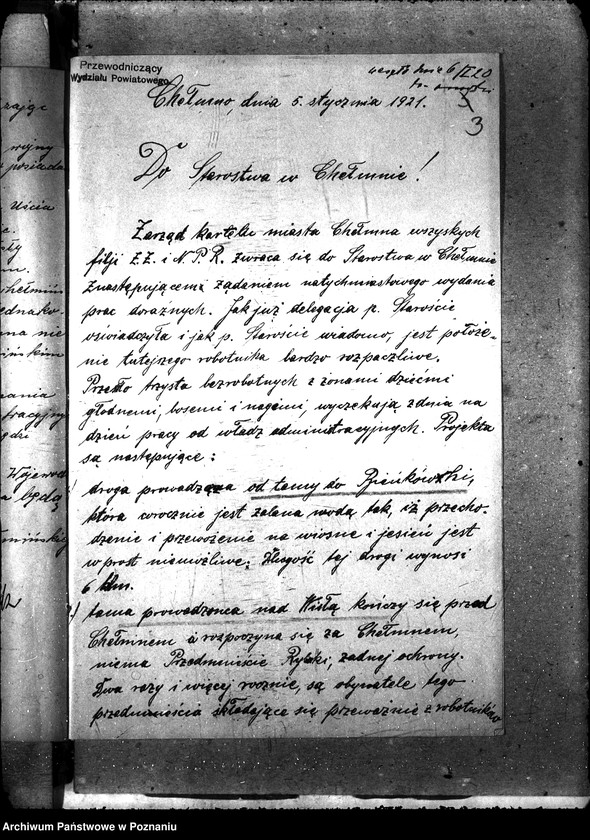 zając
wojny
posiada
Uścia
ednako-
ma nie
ińskim
fracyjny
gdzie
Wojewo
będą
Przewodniczący
Wydziału Powiatowego
Chełmno, dnia 5. stycznia 1921.
3
Do Starostwa w Chełmnie!
Zarząd kartelu miasta Chełmna wszyskych
filji Z.Z. i N.P.R. zwraca się do Starostwa w Chełmnie
z następującemi zadaniem natychmiastowego wydania
prac doraźnych. Jak już delegacja p. Staroście
oświadczyła i jak p. Staroście wiadomo, jest położe-
nie tutejszego robotnika bardzo rozpaczliwe.
Przeszło trzysta bezrobotnych z żonami dziećmi
głodnemi, bosemi i nagiemi, wyczekują z dnia na
dzień pracy od władz administracyjnych. Projekta
są następujące:
droga prowadząca od tamy do Bieńkówki,
która corocznie jest zalana wodą tak, iż przecho-
dzenie i przewożenie na wiosne i jesień jest
wprost niemożliwe. Długość tej drogi wynosi
6 klm.
tama prowadzonca nad Wisłą kończy się przed
Chełmnem a rozpoczyna się za Chełmnem,
niema Przedmieście Rybaki, żadnej ochrony.
Dwa razy i więcej rocznie, są obywatele tego
przedmieścia składające się przeważnie z robotników
Archiwum Państwowe w Poznaniu